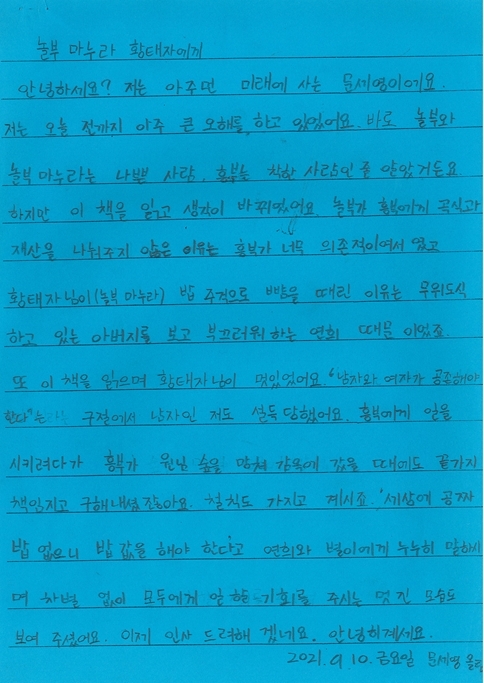 놀부 마누라 황태자에게
안녕하세요? 저는 아주먼 미래에 사는 문세영이에요.
저는 오늘 전까지 아주 큰 오해를 하고 있었어요. 바로 놀부와
놀부 마누라는 나쁜 사람, 흥부는 착한 사람인 줄 알았거든요
하지만 이 책을 읽고 생각이 바뀌었어요. 놀부가 흥부에게 곡식과
재산을 나눠주지 않은 이유는 흥부가 너무 의존적이여서 였고
황태자님이(놀부 마누라) 밥 주걱으로 뺨을 때린 이유는 무위도식
하고 있는 아버지를 보고 부끄러워 하는 연희 때문 이었죠.
또 이 책을 읽으며 황태자님이 멋있었어요. "남자와 여자가 공존해야
한다"는 구절에서 남자인 저도 설득 당했어요. 흥부에게 일을
시키려다가 흥부가 원님 숲을 망쳐 감옥에 갔을 때에도 끝가지
책임지고 구해내셨잖아요. 철칙도 가지고 계시죠. '세상에 공짜
밥 없으니 밥 값을 해야 한다'고 연희와 별이에게 누누히 말하시
며 차별 없이 모두에게 일 할 기회를 주시는 멋진 모습도
보여 주셨어요. 이제 인사 드려해 겠네요. 안녕히계세요.
2021. 9. 10. 금요일 문세영 올림